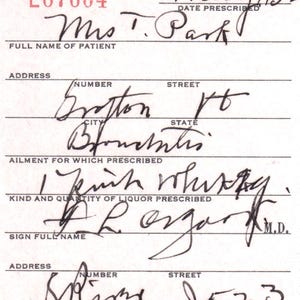 L67604
DATE PRESCRIBED
Mrs T. Park
FULL NAME OF PATIENT
ADDRESS
NUMBER STREET
Grafton Vt
CITY STATE
Bronchitis
AILMENT FOR WHICH PRESCRIBED
1 pint whiskey.
KIND AND QUANTITY OF LIQUOR PRESCRIBED
F L Osgood M.D.
SIGN FULL NAME
ADDRESS
NUMBER STREET